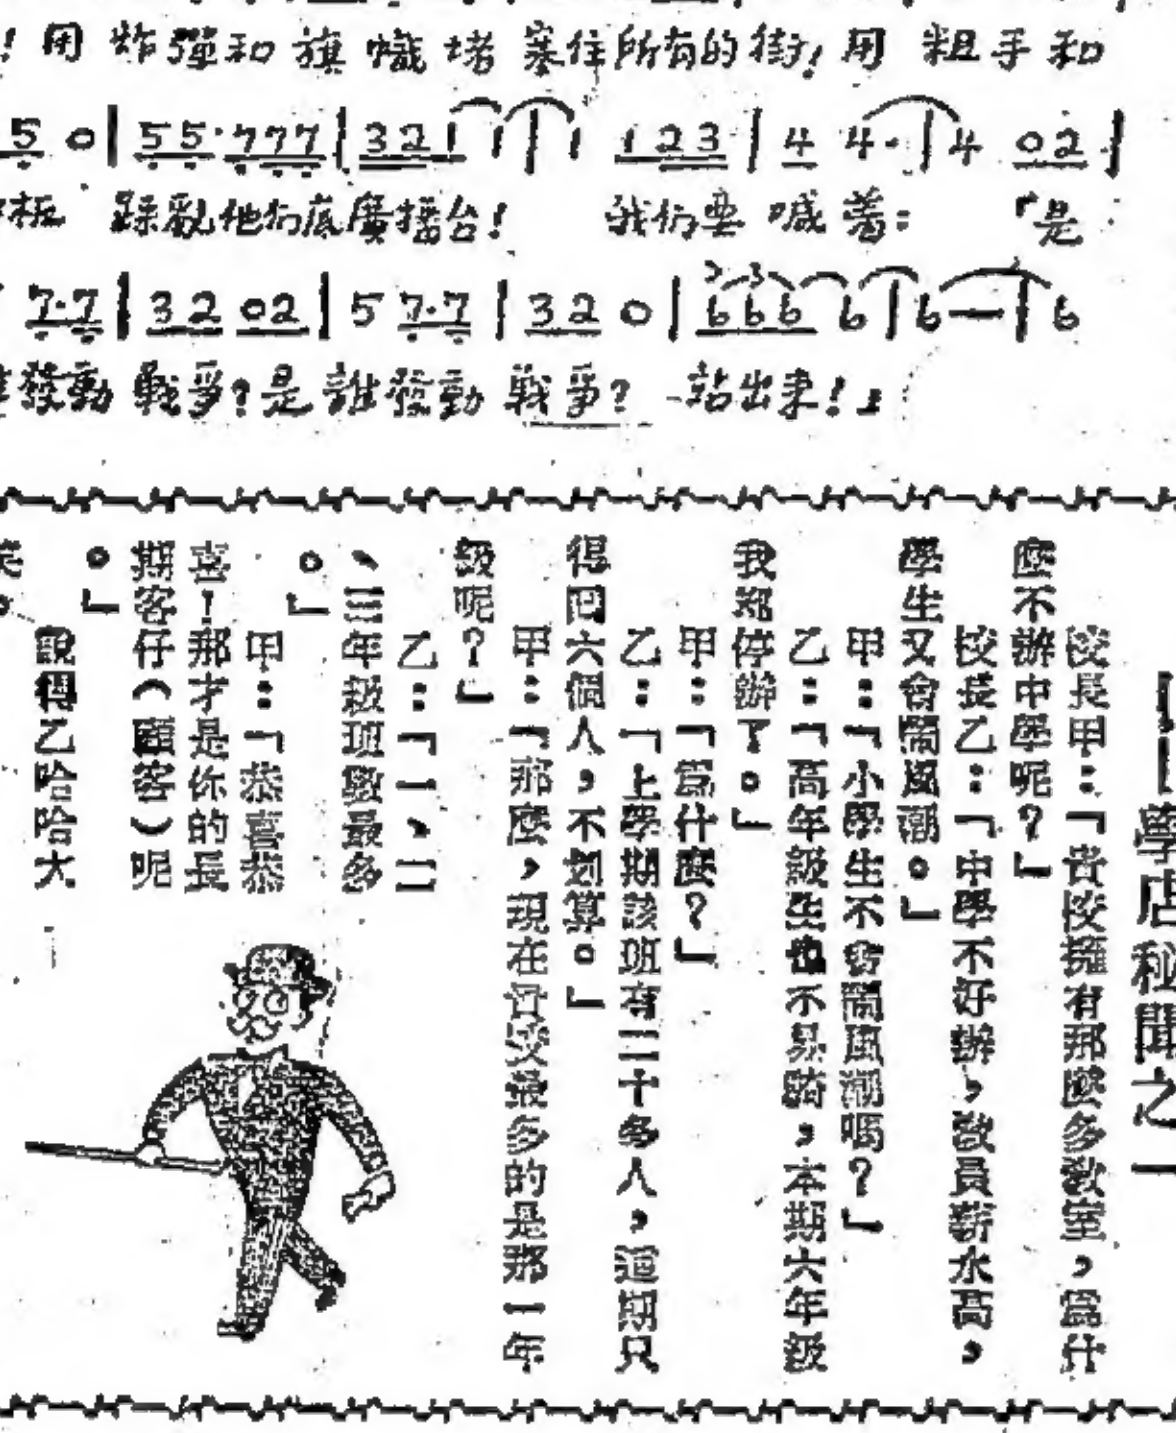 ！用炸彈和旗幟堵塞住所有的街！用粗手和
5 0 | 5 5· 7 7 7 | 3 2 1 1 | 1 1 2 3 | 4 4· | 4 0 2 |
板 踩亂他們底廣播台！ 我們要喊着：「是
7·7 | 3 2 0 2 | 5 7·7 | 3 2 0 | 6 6 6 6 | 6 — | 6
發動戰爭？是誰發動戰爭？站出來！」
——學店秘聞之一
校長甲：「貴校擁有那麼多教室，爲什
麼不辦中學呢？」
校長乙：「中學不好辦，教員薪水高，
學生又會鬧風潮。」
甲：「小學生不會鬧風潮嗎？」
乙：「高年級生也不易辦，本期六年級
我都停辦了。」
甲：「爲什麼？」
乙：「上學期該班有二十多人，這期只
得回六個人，不划算。」
甲：「那麼，現在貴校最多的是那一年
級呢？」
乙：「一、二
、三年級班數最多
。」
甲：「恭喜恭
喜！那才是你的長
期客仔（顧客）呢
。」
說得乙哈哈大
笑。